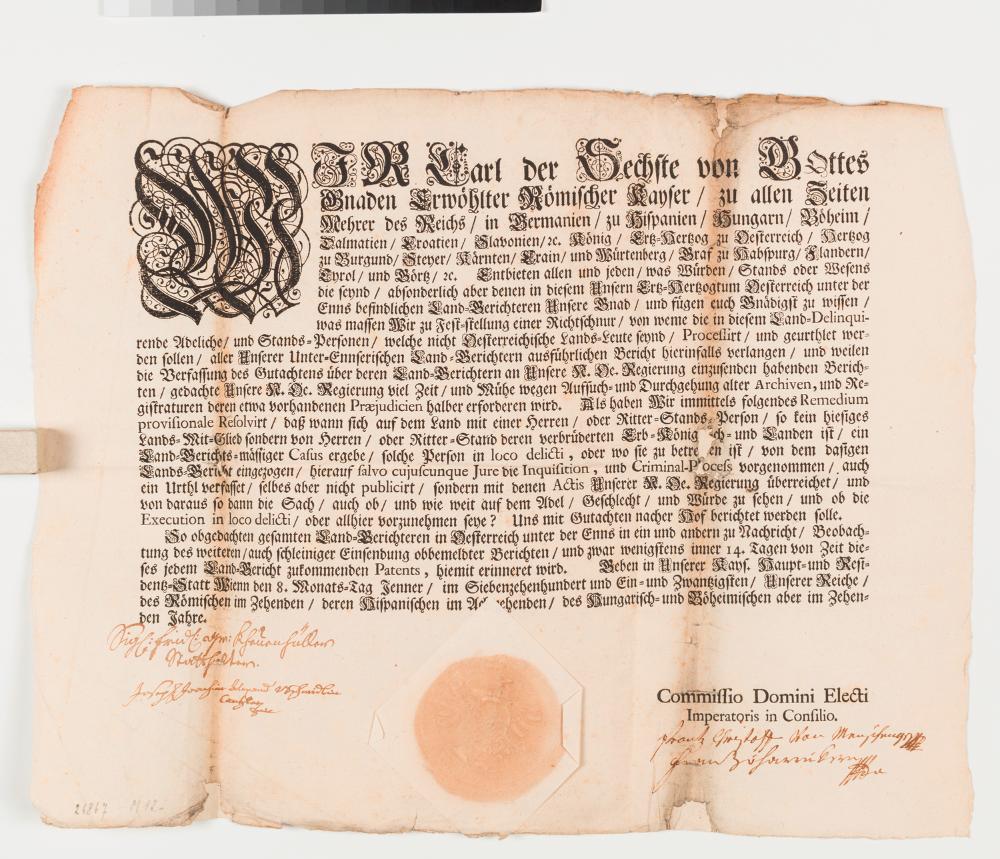 WIR Carl der Sechste von GOttes
Gnaden Erwöhlter Römischer Kayser / zu allen Zeiten
Mehrer des Reichs / in Germanien / zu Hispanien / Hungarn / Böheim /
Dalmatien / Croatien / Slavonien / ꝛc. König / Ertz-Hertzog zu Oesterreich / Hertzog
zu Burgund / Steyer / Kärnten / Crain / und Würtenberg / Graf zu Habspurg / Flandern /
Tyrol / und Görtz / ꝛc. Entbieten allen und jeden / was Würden / Stands oder Wesens
die seynd / absonderlich aber denen in diesem Unsern Ertz-Hertzogtum Oesterreich unter der
Enns befindlichen Land-Gerichteren Unsere Gnad / und fügen euch Gnädigst zu wissen /
was massen Wir zu Fest-stellung einer Richtschnur / von weme die in diesem Land-Delinqui-
rende Adeliche / und Stands-Personen / welche nicht Oesterreichische Lands-Leute seynd / Processirt / und geurthlet wer-
den sollen / aller Unserer Unter-Ennserischen Land-Gerichtern ausführlichen Bericht hierinfalls verlangen / und weilen
die Verfassung des Gutachtens über deren Land-Gerichtern an Unsere N. Oe. Regierung einzusenden habenden Berich-
ten / gedachte Unsere N. Oe. Regierung viel Zeit / und Mühe wegen Auffsuch- und Durchgehung alter Archiven, und Re-
gistraturen deren etwa vorhandenen Præjudicien halber erforderen wird. Als haben Wir immittels folgendes Remedium
provisionale Resolvirt / daß wann sich auf dem Land mit einer Herren / oder Ritter-Stands-Person / so kein hiesiges
Lands-Mit-Glied sondern von Herren / oder Ritter-Stand deren verbrüderten Erb-König ch- und Landen ist / ein
Land-Gerichts-mässiger Casus ergebe / solche Person in loco delicti, oder wo sie zu betre en ist / von dem dasigen
Lands-Gericht eingezogen / hierauf salvo cujuscunque Jure die Inquisition, und Criminal-Process vorgenommen / auch
ein Urthl verfasset / selbes aber nicht publicirt / sondern mit denen Actis Unserer N. Oe. Regierung überreichet / und
von daraus so dann die Sach / auch ob / und wie weit auf dem Adel / Geschlecht / und Würde zu sehen / und ob die
Execution in loco delicti / oder allhier vorzunehmen seye? Uns mit Gutachten nacher Hof berichtet werden solle.
So obgedachten gesamten Land-Gerichteren in Oesterreich unter der Enns in ein und andern zu Nachricht / Beobach-
tung des weiteren / auch schleiniger Einsendung obbemeldter Berichten / und zwar wenigstens inner 14. Tagen von Zeit die-
ses jedem Land-Gericht zukommenden Patents, hiemit erinneret wird. Geben in Unserer Kays. Haupt- und Resi-
dentz-Statt Wienn den 8. Monats-Tag Jenner / im Siebenzehenhundert und Ein- und Zwantzigsten / Unserer Reiche /
des Römischen im Zehenden / deren Hispanischen im Ach zehenden / des Hungarisch- und Böheimischen aber im Zehen-
den Jahre.
Statthalter.
Joseph Joachim
Cantzler
Commissio Domini Electi
Imperatoris in Consilio.
Frantz Christoff Von Menßhengen
21267 M12-